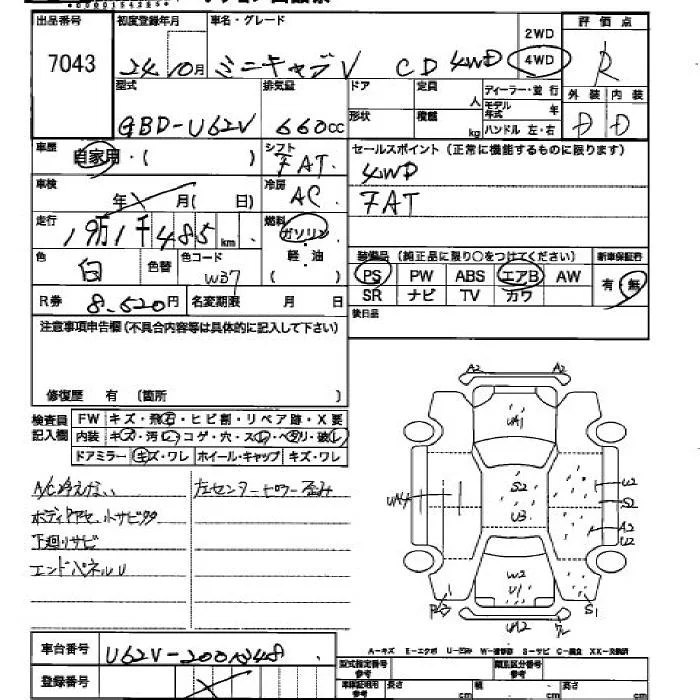 出品番号 初度登録年月 車名・グレード 2WD 評価点
7043 24.10月 ミニキャブV CD 4WD 4WD R
型式 排気量 ドア 定員 人 ディーラー・並行 外装 内装
GBD-U62V 660cc 形状 積載 kg モデル年式 年 ハンドル 左・右 D D
車歴 自家用・( ) シフト FAT セールスポイント(正常に機能するものに限ります)
4WD
車検 年 月( 日) 冷房 AC
FAT
走行 19万1千485km 燃料 ガソリン
軽・油
( )
色 白 色替 色コード W37
装備品(純正品に限り○をつけてください) 新車保証書
PS PW ABS エアB AW 有・無
SR ナビ TV カワ
R券 8.520円 名変期限 月 日
後日品
注意事項申告欄(不具合内容等は具体的に記入して下さい)
修復歴 有 (箇所 )
検査員 FW キズ・飛石・ヒビ割・リペア跡・X要
記入欄 内装 キズ・汚レ・コゲ・穴・スレ・ヘタリ・破レ
ドアミラー キズ・ワレ ホイール・キャップ キズ・ワレ
A/C冷えない 左センターピラー歪み
小サビ
下廻りサビ
エンドパネルU
A2 A2
UA1
S2
U3
W2
U1
UA4
U2
S2
A2
U2
S1
車台番号 U62V-
登録番号
A-キズ E-エクボ U-凹み S-サビ
型式指定番号 参考 類別区分番号 参考
長さ cm 幅 cm 高さ cm